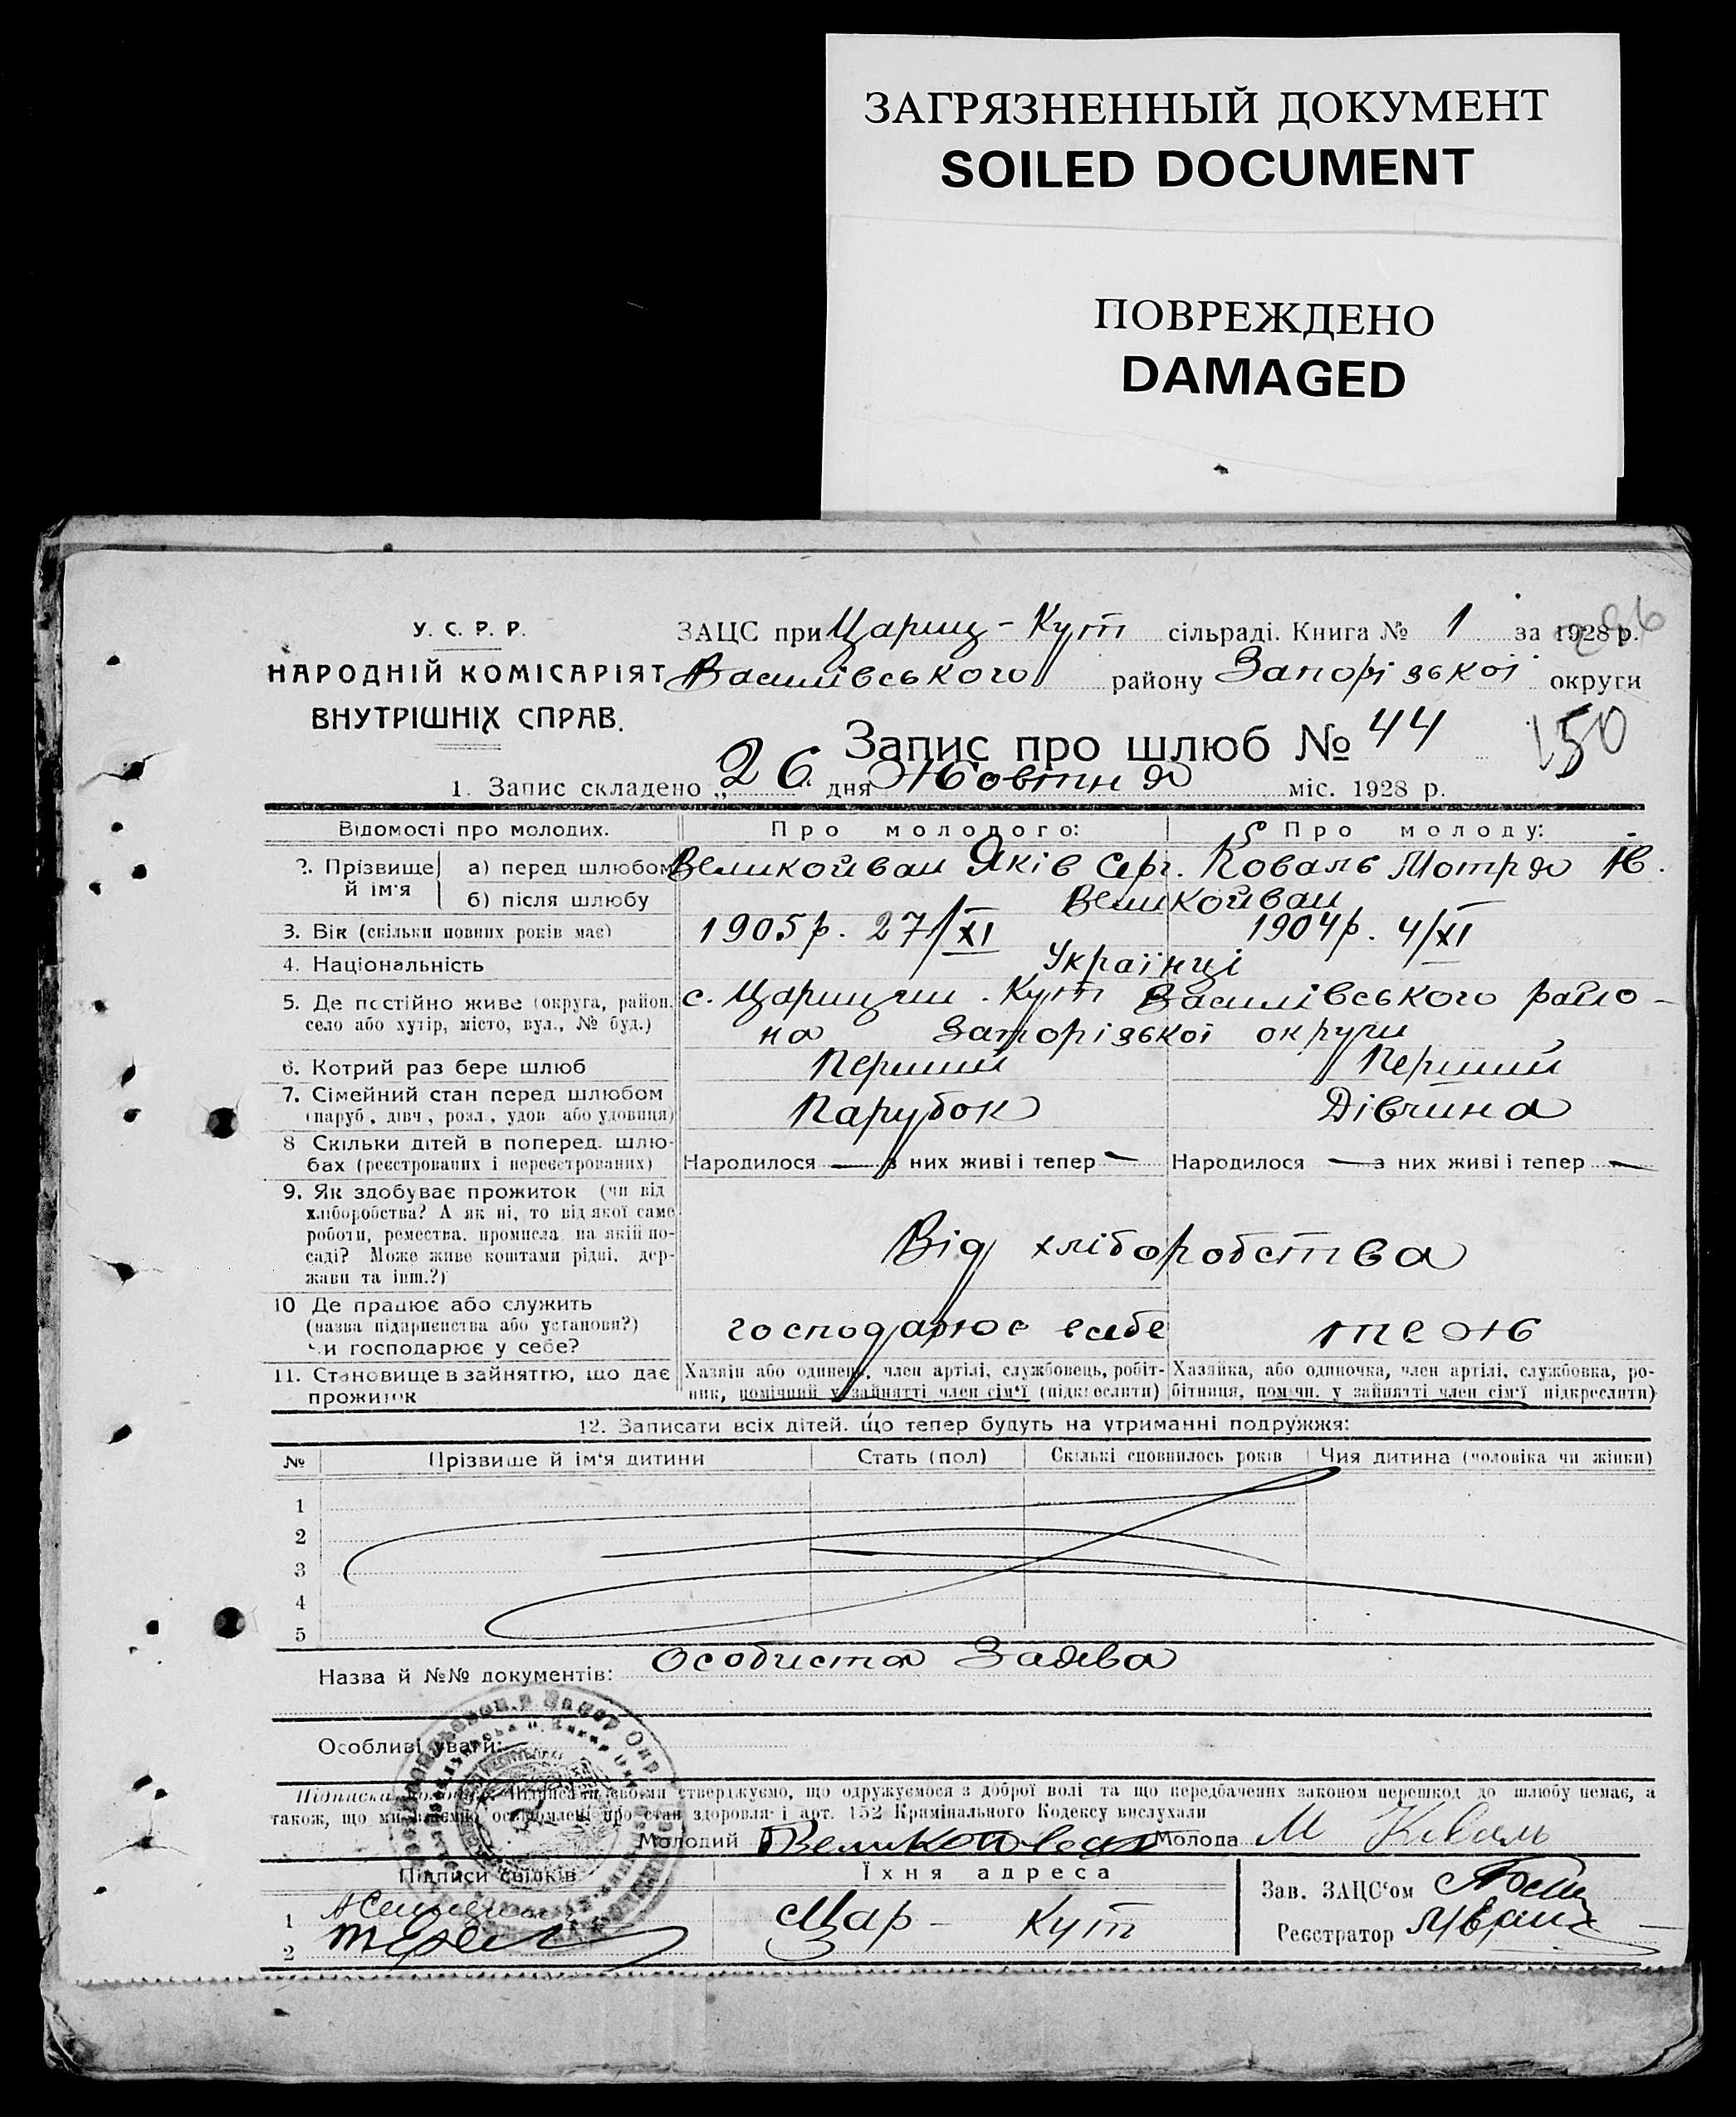 ЗАГРЯЗНЕННЫЙ ДОКУМЕНТ
SOILED DOCUMENT
ПОВРЕЖДЕНО
DAMAGED
У. С. Р. Р.
НАРОДНІЙ КОМІСАРІЯТ
ВНУТРІШНІХ СПРАВ.
ЗАЦС при Цариц-Кут сільраді. Книга № 1 за 1928 р.
Василівського району Запорізької округи
Запис про шлюб № 44
150
1. Запис складено „26" дня Жовтня міс. 1928 р.
Відомості про молодих. Про молодого: Про молоду:
2. Прізвище й ім'я а) перед шлюбом Великойван Яків Серг. Коваль Мотря Ів.
б) після шлюбу Великойван
3. Вік (скільки повних років має) 1905 р. 27/XI 1904 р. 4/XI
4. Національність Українці
5. Де постійно живе (округа, район, с. Царицин. Кут Василівського райо-
село або хутір, місто, вул., № буд.) на Запорізької округи
6. Котрий раз бере шлюб Перший Перший
7. Сімейний стан перед шлюбом Парубок Дівчина
(паруб., дівч., розл., удов. або удовиця)
8 Скільки дітей в поперед. шлю-
бах (реєстрованих і нереєстрованих) Народилося — з них живі і тепер — Народилося — з них живі і тепер —
9. Як здобуває прожиток (чи від
хліборобства? А як ні, то від якої саме
роботи, ремества, промисла, на якій по-
саді? Може живе коштами рідні, дер-
жави та інш.?) Від хліборобства
10 Де працює або служить
(назва підприємства або установи?) господарює в себе теж
чи господарює у себе?
11. Становище в зайняттю, що дає Хазяїн або одинець, член артілі, службовець, робіт- Хазяйка, або одиночка, член артілі, службовка, ро-
прожиток ник, помічний у зайнятті член сім'ї (підкреслити) бітниця, помічн. у зайнятті член сім'ї підкреслити)
12. Записати всіх дітей, що тепер будуть на утриманні подружжя:
№ Прізвище й ім'я дитини Стать (пол) Скількі сповнилось років Чия дитина (чоловіка чи жінки)
1
2
3
4
5
Назва й №№ документів: Особиста Заява
Особливі уваги:
Підписка Підписами своїми стверджуємо, що одружуємося з доброї волі та що передбачених законом перешкод до шлюбу немає, а
також, що ми взаємно освідомлені про стан здоровля і арт. 152 Кримінального Кодексу вислухали
Молодий Великойван Молода М Коваль
Підписи свідків Їхня адреса
Зав. ЗАЦС'ом
1 Цар- Кут
Реєстратор
2